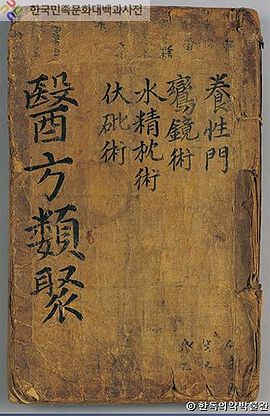 한국민족문화대백과사전
養性門
鸞鏡術
水精枕術
伏砒術
醫方類聚
ⓒ한독의약박물관